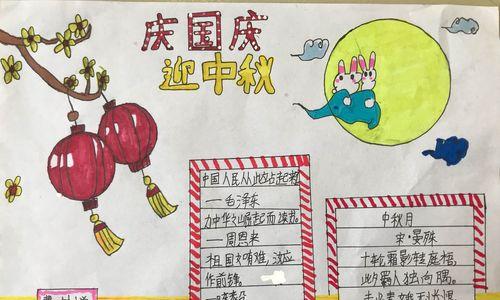 庆国庆
迎中秋
中国人民从此站起来
—毛泽东
为中华之崛起而读书。
—周恩来
祖国有难，汝应
作前锋。
中秋月
宋·晏殊
十轮霜影转庭梧，
此夕羁人独向隅。
未必素娥无怅恨